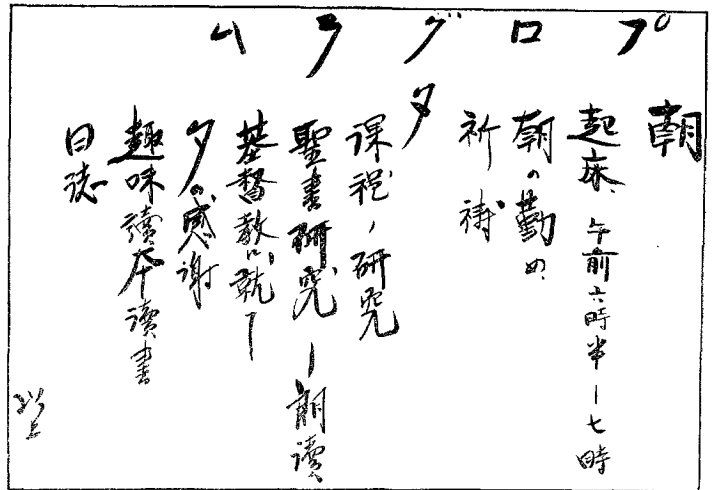 プログラム
朝
起床、午前六時半―七時
朝の勤め、
祈祷
夕
課程ノ研究
聖書研究―朗讀
基督教ニ就テ
夕の感謝
趣味讀本讀書
日誌
以上